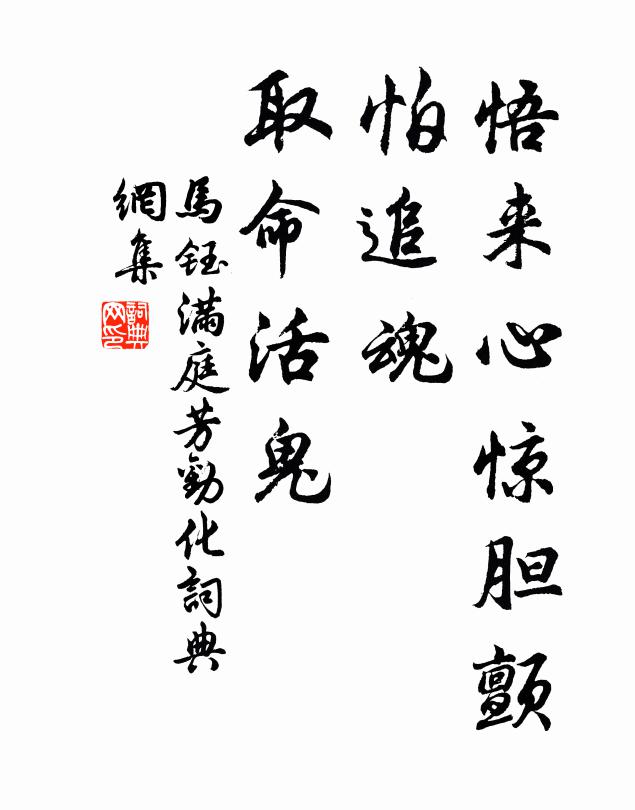 悟来心惊胆颤
怕追魂
取命活鬼
馬鈺滿庭芳勸化詞典
網集
詞典
网印